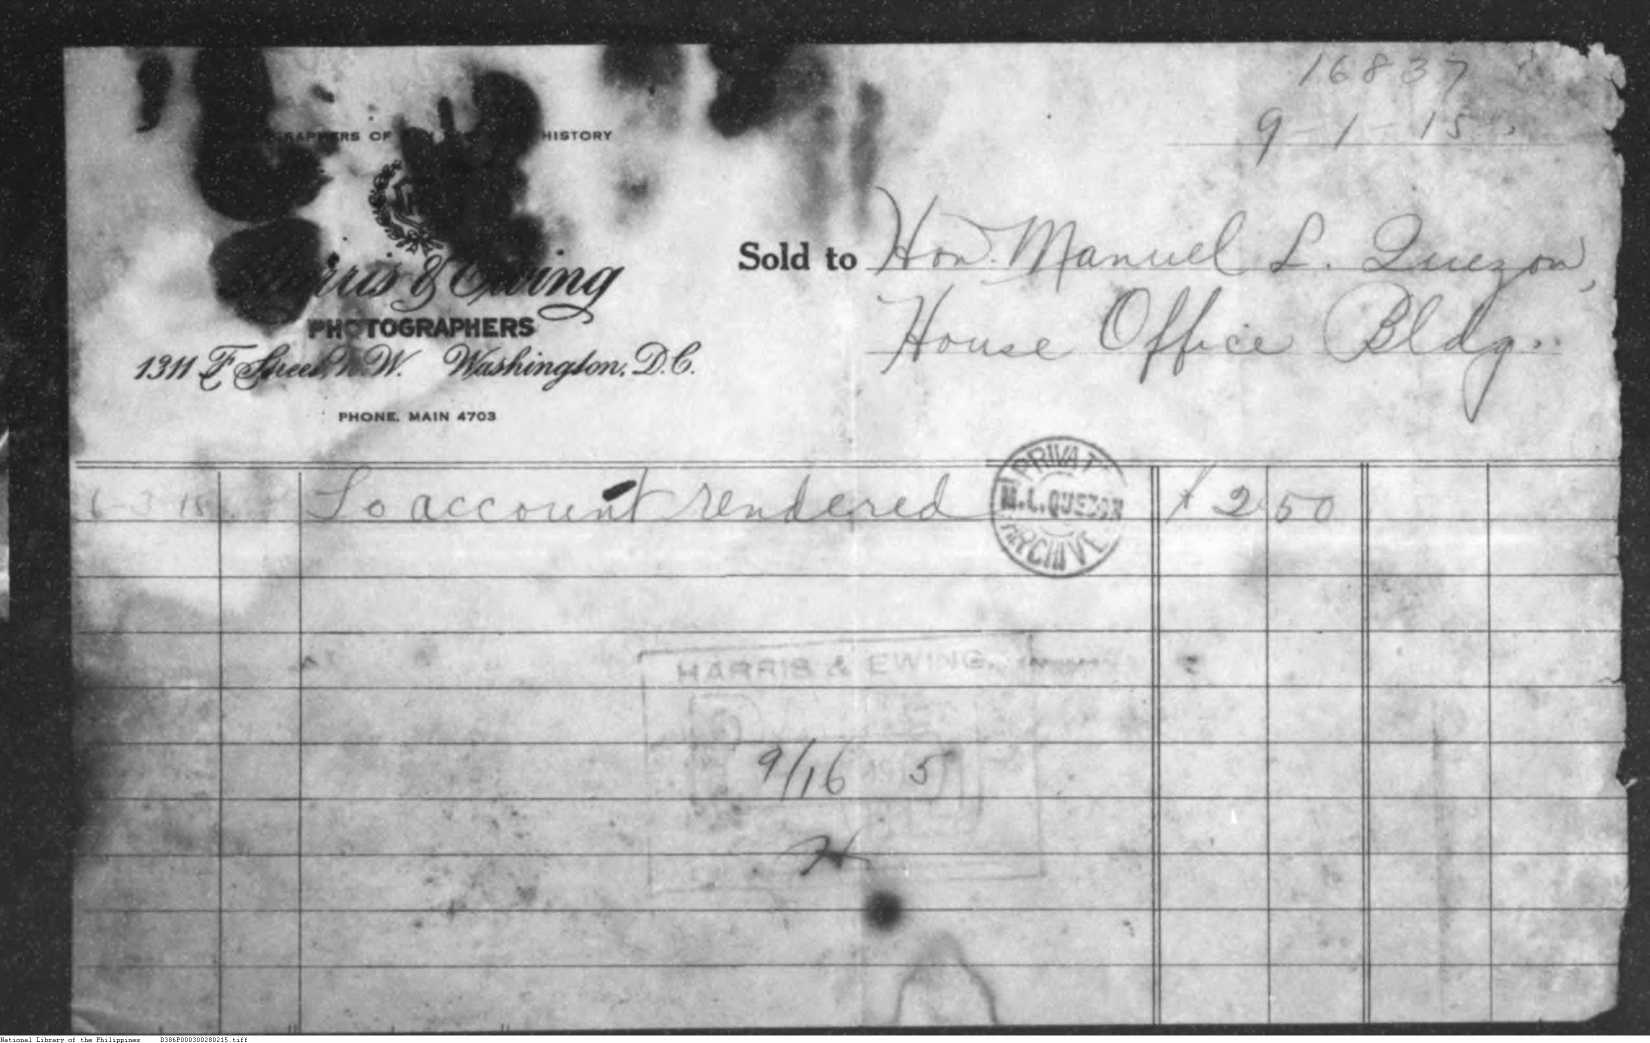 16837
9-1-15
OF HISTORY
Harris & Ewing
PHOTOGRAPHERS
1311 F Street, N.W. Washington, D.C.
PHONE, MAIN 4703
Sold to Hon. Manuel L. Quezon,
House Office Bldg.
6-3-15 To account rendered $2 50
PRIVATE
M.L.QUEZON
ARCHIVE
HARRIS & EWING,
9/16 5
H
National Library of the Philippines D386P000300280215.tiff